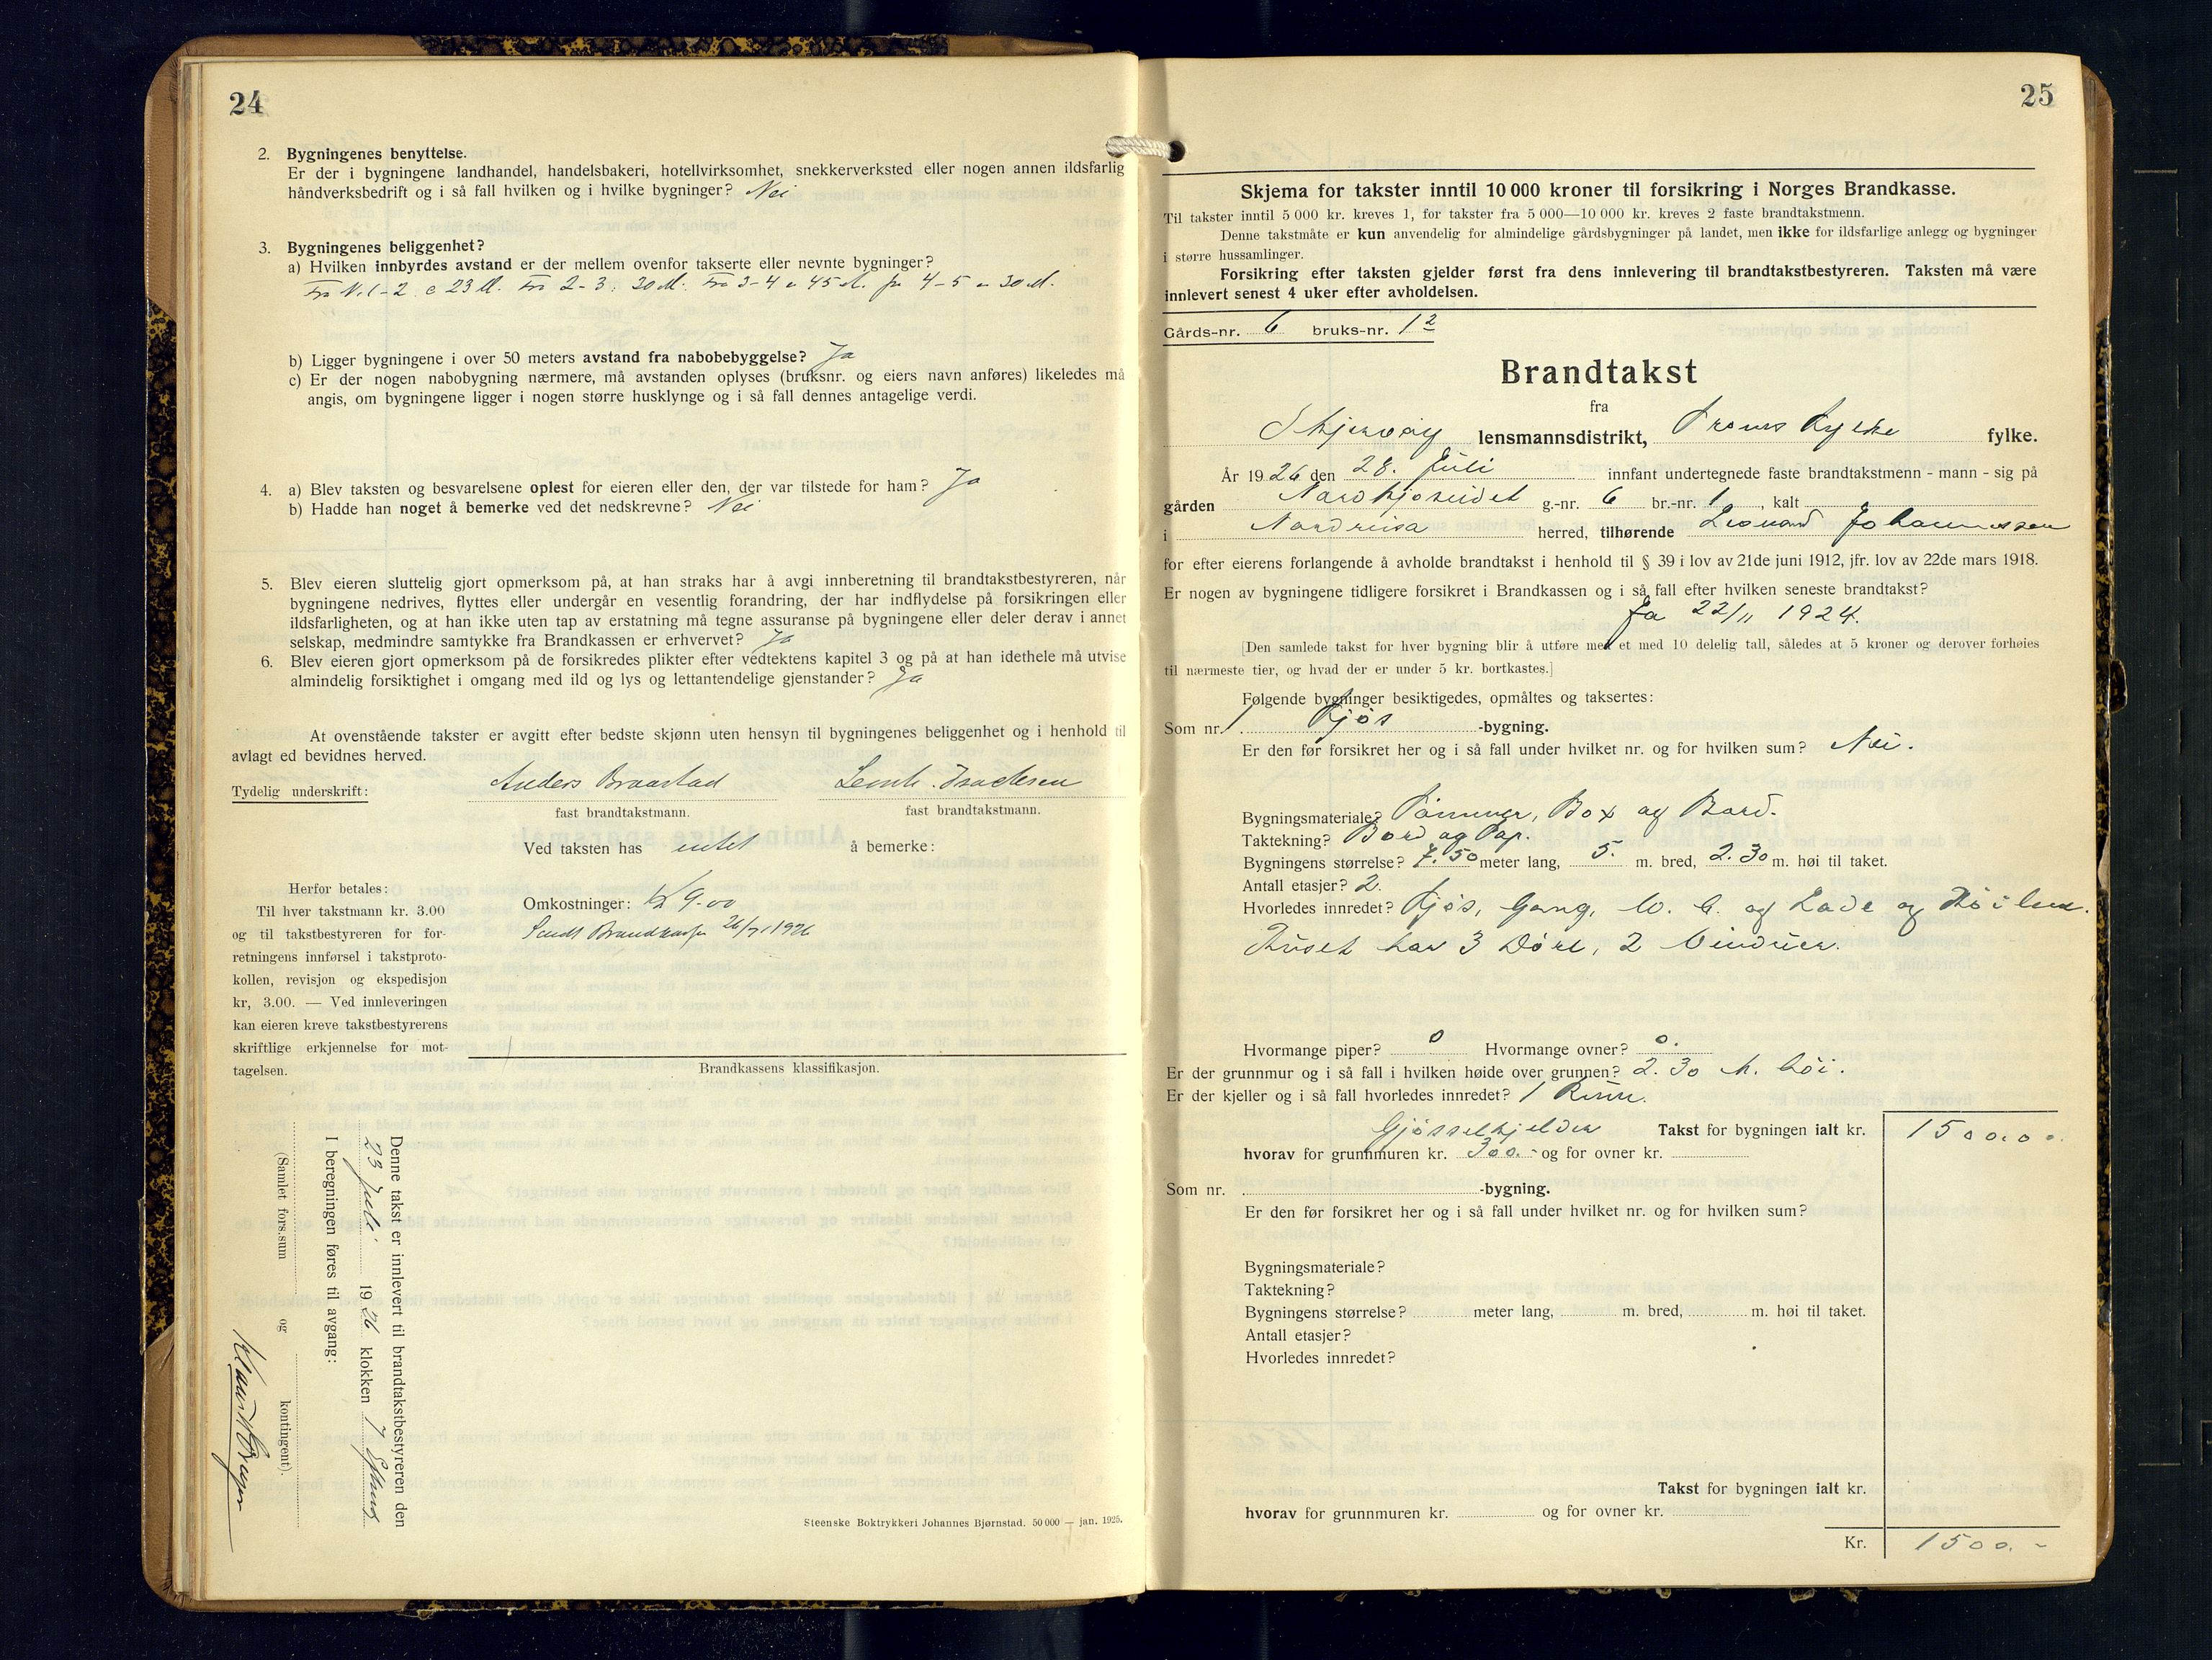 24
2. Bygningenes benyttelse.
Er der i bygningene landhandel, handelsbakeri, hotellvirksomhet, snekkerverksted eller nogen annen ildsfarlig
håndverksbedrift og i så fall hvilken og i hvilke bygninger? Nei
3. Bygningenes beliggenhet?
a) Hvilken innbyrdes avstand er der mellem ovenfor takserte eller nevnte bygninger?
Fra N. 1-2 c 23 M. Fra 2-3: 30 M. Fra 3-4 c 45 M. fra 4-5 c 30 M.
b) Ligger bygningene i over 50 meters avstand fra nabobebyggelse? Ja
c) Er der nogen nabobygning nærmere, må avstanden oplyses (bruksnr. og eiers navn anføres) likeledes må
angis, om bygningene ligger i nogen større husklynge og i så fall dennes antagelige verdi.
4. a) Blev taksten og besvarelsene oplest for eieren eller den, der var tilstede for ham? Ja
b) Hadde han noget å bemerke ved det nedskrevne? Nei
5. Blev eieren sluttelig gjort opmerksom på, at han straks har å avgi innberetning til brandtakstbestyreren, når
bygningene nedrives, flyttes eller undergår en vesentlig forandring, der har indflydelse på forsikringen eller
ildsfarligheten, og at han ikke uten tap av erstatning må tegne assuranse på bygningene eller deler derav i annet
selskap, medmindre samtykke fra Brandkassen er erhvervet? Ja
6. Blev eieren gjort opmerksom på de forsikredes plikter efter vedtektens kapitel 3 og på at han idethele må utvise
almindelig forsiktighet i omgang med ild og lys og lettantendelige gjenstander? Ja
At ovenstående takster er avgitt efter bedste skjønn uten hensyn til bygningenes beliggenhet og i henhold til
avlagt ed bevidnes herved.
Tydelig underskrift: Anders Braastad
fast brandtakstmann. fast brandtakstmann.
Ved taksten has intet å bemerke:
Herfor betales:
Til hver takstmann kr. 3.00
og til takstbestyreren for for-
retningens innførsel i takstproto-
kollen, revisjon og ekspedisjon
kr, 3.00. — Ved innleveringen
kan eieren kreve takstbestyrerens
skriftlige erkjennelse for mot-
tagelsen.
Omkostninger: Kr 9.00
Sendt Brandkassen 26/7 1926
Brandkassens klassifikasjon.
Denne takst er innlevert til brandtakstbestyreren den
23 Juli 1926 klokken 7 Efterm
I beregningen føres til avgang:
(Samlet fors.sum og kontingent).
Steenske Boktrykkeri Johannes Bjørnstad. 50 000 — jan. 1925.
25
Skjema for takster inntil 10 000 kroner til forsikring i Norges Brandkasse.
Til takster inntil 5 000 kr. kreves 1, for takster fra 5 000—10 000 kr. kreves 2 faste brandtakstmenn.
Denne takstmåte er kun anvendelig for almindelige gårdsbygninger på landet, men ikke for ildsfarlige anlegg og bygninger
i større hussamlinger.
Forsikring efter taksten gjelder først fra dens innlevering til brandtakstbestyreren. Taksten må være
innlevert senest 4 uker efter avholdelsen.
Gårds-nr. 6 bruks-nr. 1 2
Brandtakst
fra
Skjervøy lensmannsdistrikt, Troms Fylke fylke.
År 1926 den 28. Juli innfant undertegnede faste brandtakstmenn - mann - sig på
gården Nordkjoseidet g.-nr. 6 br.-nr. 1, kalt
i Nordreisa herred, tilhørende Leonard Johannessen
for efter eierens forlangende å avholde brandtakst i henhold til § 39 i lov av 21de juni 1912, jfr. lov av 22de mars 1918.
Er nogen av bygningene tidligere forsikret i Brandkassen og i så fall efter hvilken seneste brandtakst?
Ja 22/11 1924.
[Den samlede takst for hver bygning blir å utføre med et med 10 delelig tall, således at 5 kroner og derover forhøies
til nærmeste tier, og hvad der er under 5 kr. bortkastes.]
Følgende bygninger besiktigedes, opmåltes og taksertes:
Som nr. 1 Fjøs -bygning.
Er den før forsikret her og i så fall under hvilket nr. og for hvilken sum? Nei.
Bygningsmateriale? Tømmer, Box og Bord.
Taktekning? Bord og Pap.
Bygningens størrelse? 7.50 meter lang, 5. m. bred, 2.30 m. høi til taket.
Antall etasjer? 2.
Hvorledes innredet? Fjøs, Gang, W. C. og Lade og
Huset har 3 Døre, 2 Vinduer.
Hvormange piper? 0 Hvormange ovner? 0.
Er der grunnmur og i så fall i hvilken høide over grunnen? 2.30 M. høi.
Er der kjeller og i så fall hvorledes innredet? 1 Rum.
Gjøsselkjelder Takst for bygningen ialt kr. 1500.00.
hvorav for grunnmuren kr. 300.- og for ovner kr.
Som nr. -bygning.
Er den før forsikret her og i så fall under hvilket nr. og for hvilken sum?
Bygningsmateriale?
Taktekning?
Bygningens størrelse? meter lang, m. bred, m. høi til taket.
Antall etasjer?
Hvorledes innredet?
Takst for bygningen ialt kr.
hvorav for grunnmuren kr. og for ovner kr.
Kr. 1500.-